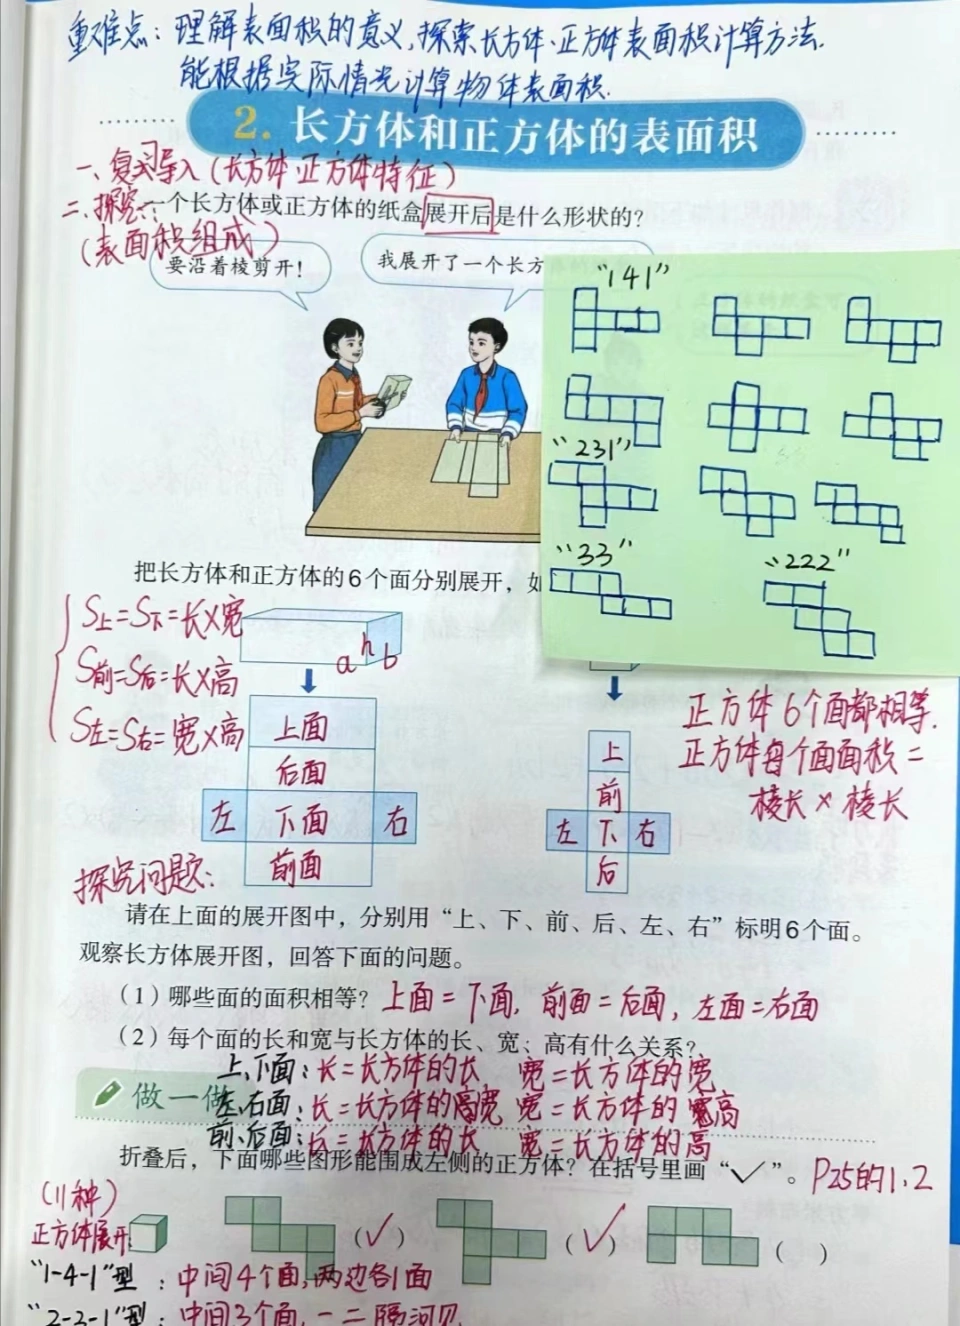 重难点：理解表面积的意义,探索长方体、正方体表面积计算方法.
能根据实际情况计算物体表面积.
2. 长方体和正方体的表面积
一、复习导入(长方体、正方体特征)
二、探究：一个长方体或正方体的纸盒展开后是什么形状的？
(表面积组成)
要沿着棱剪开！
我展开了一个长方
"141"
"231"
"33"
"222"
把长方体和正方体的6个面分别展开，如
S上=S下=长×宽
S前=S后=长×高
S左=S右=宽×高
a h b
上面
后面
左 下面 右
前面
上
前
左 下 右
后
正方体6个面都相等.
正方体每个面面积=
棱长×棱长
探究问题：
请在上面的展开图中，分别用“上、下、前、后、左、右”标明6个面。
观察长方体展开图，回答下面的问题。
（1）哪些面的面积相等？ 上面=下面, 前面=后面, 左面=右面
（2）每个面的长和宽与长方体的长、宽、高有什么关系？
上、下面：长=长方体的长 宽=长方体的宽
做一做
左、右面：长=长方体的宽 宽=长方体的高
前、后面：长=长方体的长 宽=长方体的高
折叠后，下面哪些图形能围成左侧的正方体？在括号里画“✓”。 P25的1、2
(11种)
正方体展开
（✓） （✓） （ ）
"1-4-1"型：中间4个面,两边各1面
"2-3-1"型：中间3个面,一二隔河见